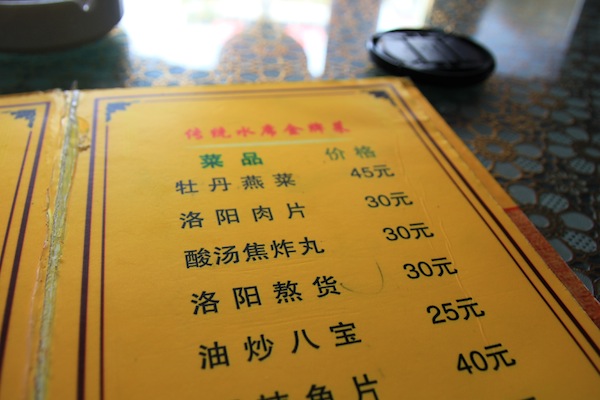 传统水席金牌菜
菜品 价格
牡丹燕菜 45元
洛阳肉片 30元
酸汤焦炸丸 30元
洛阳熬货 30元
油炒八宝 25元
鱼片 40元